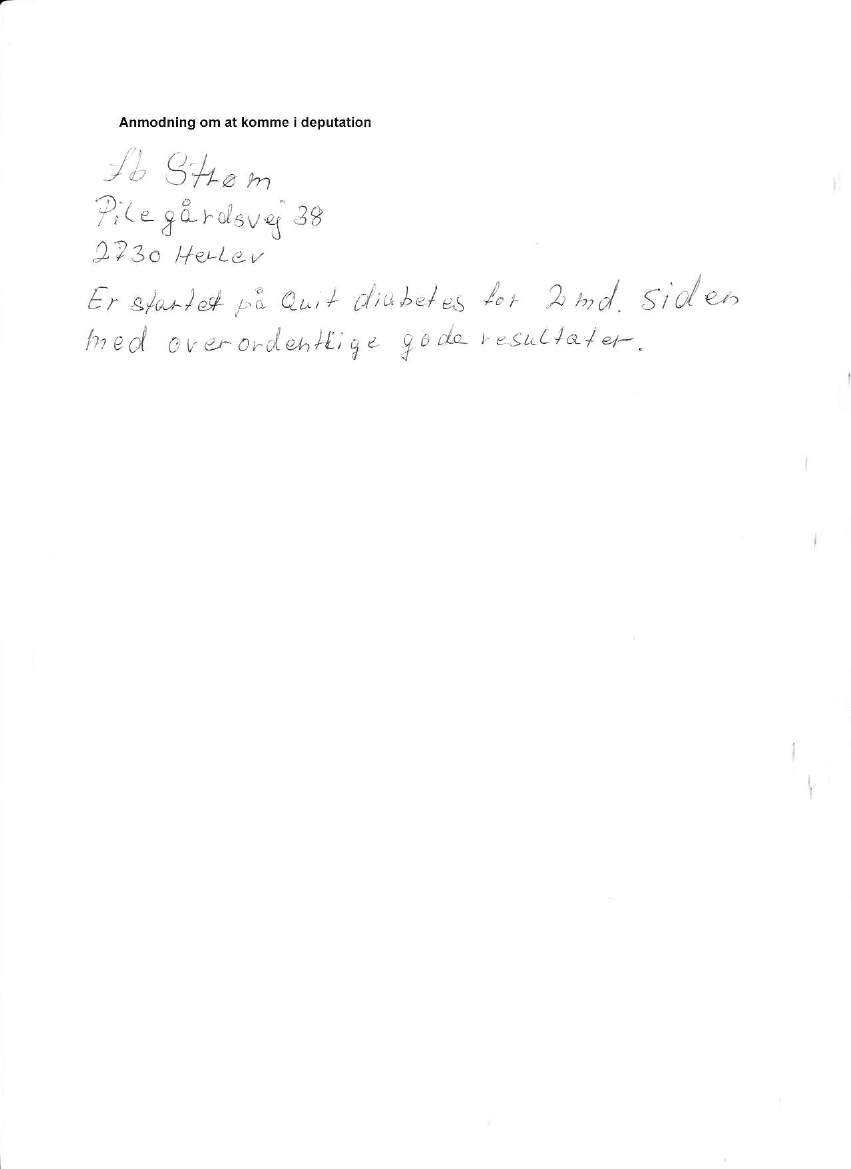 Anmodning om at komme i deputation
Ib Strøm
Pilegårdsvej 38
2730 Herlev
Er startet på Quit diabetes for 2 md. siden
med overordentlige gode resultater.